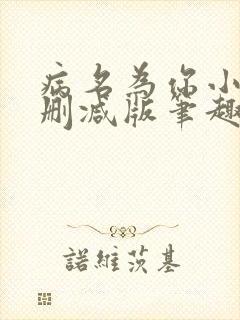 病名为你小
删减版笔趣
諾維茨基